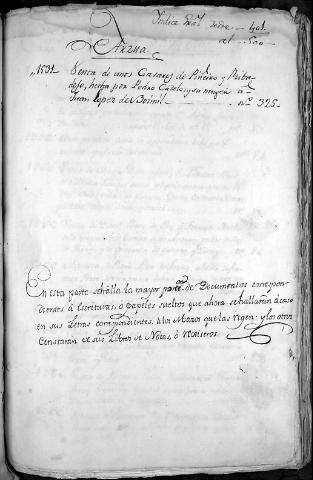 Indice
401
al 500
Arzua.
1531. Venta de unos Casares de Piñeiro y Riba
deso, hecha por Pedro y su muger á
Juan Lopez de N.º 325.
En esta parte se halla la mayor parte de Documentos correspon-
dientes á Escrituras, ó papeles sueltos que ahora se hallarán acaso
en sus Letras correspondientes, á los Mazos que las rigen: y los otros
Constarán de sus Libros de Notas, ó Rexistros